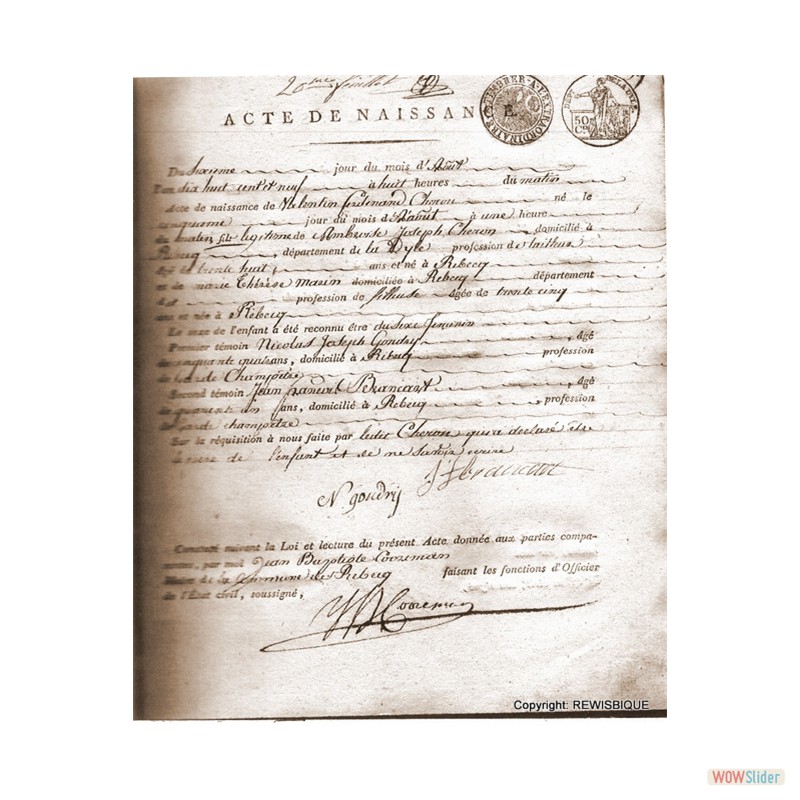 2me feuillet
ACTE DE NAISSAN
TIMBRER-A-L'EXTRAORDINAIRE
E.
50 Cs
Du sixieme jour du mois d'Août
l'an dix huit cent et neuf à huit heures du matin
Acte de naissance de Valentin ferdinand Cheron né le
cinquieme jour du mois d'aout à une heure
du matin, fils legitime de Ambroise Joseph Cheron domicilié à
Rebecq, département de la Dyle profession de
âgé de trente huit ans et né à Rebecq
et de marie Thérèse marin domiciliée à Rebecq département
dit profession de fileuse âgée de trente cinq
ans et née à Rebecq
Le sexe de l'enfant a été reconnu être du sexe feminin
Premier témoin Nicolas Joseph Gondry, âgé
de cinquante quatre ans, domicilié à Rebecq profession
de Garde Champêtre
Second témoin Jean francois Brancart, âgé
de quarante un ans, domicilié à Rebecq, profession
de Garde champetre
Sur la réquisition à nous faite par ledit Cheron qui a declaré etre
le pere de l'enfant et de ne savoir ecrire
N gondrij
Constaté suivant la Loi et lecture du présent Acte donnée aux parties compa-
rantes, par moi Jean Baptiste Cooreman
Maire de la Commune de Rebecq faisant les fonctions d'Officier
de l'État civil, soussigné,
Cooreman
Copyright: REWISBIQUE
WOWSlider